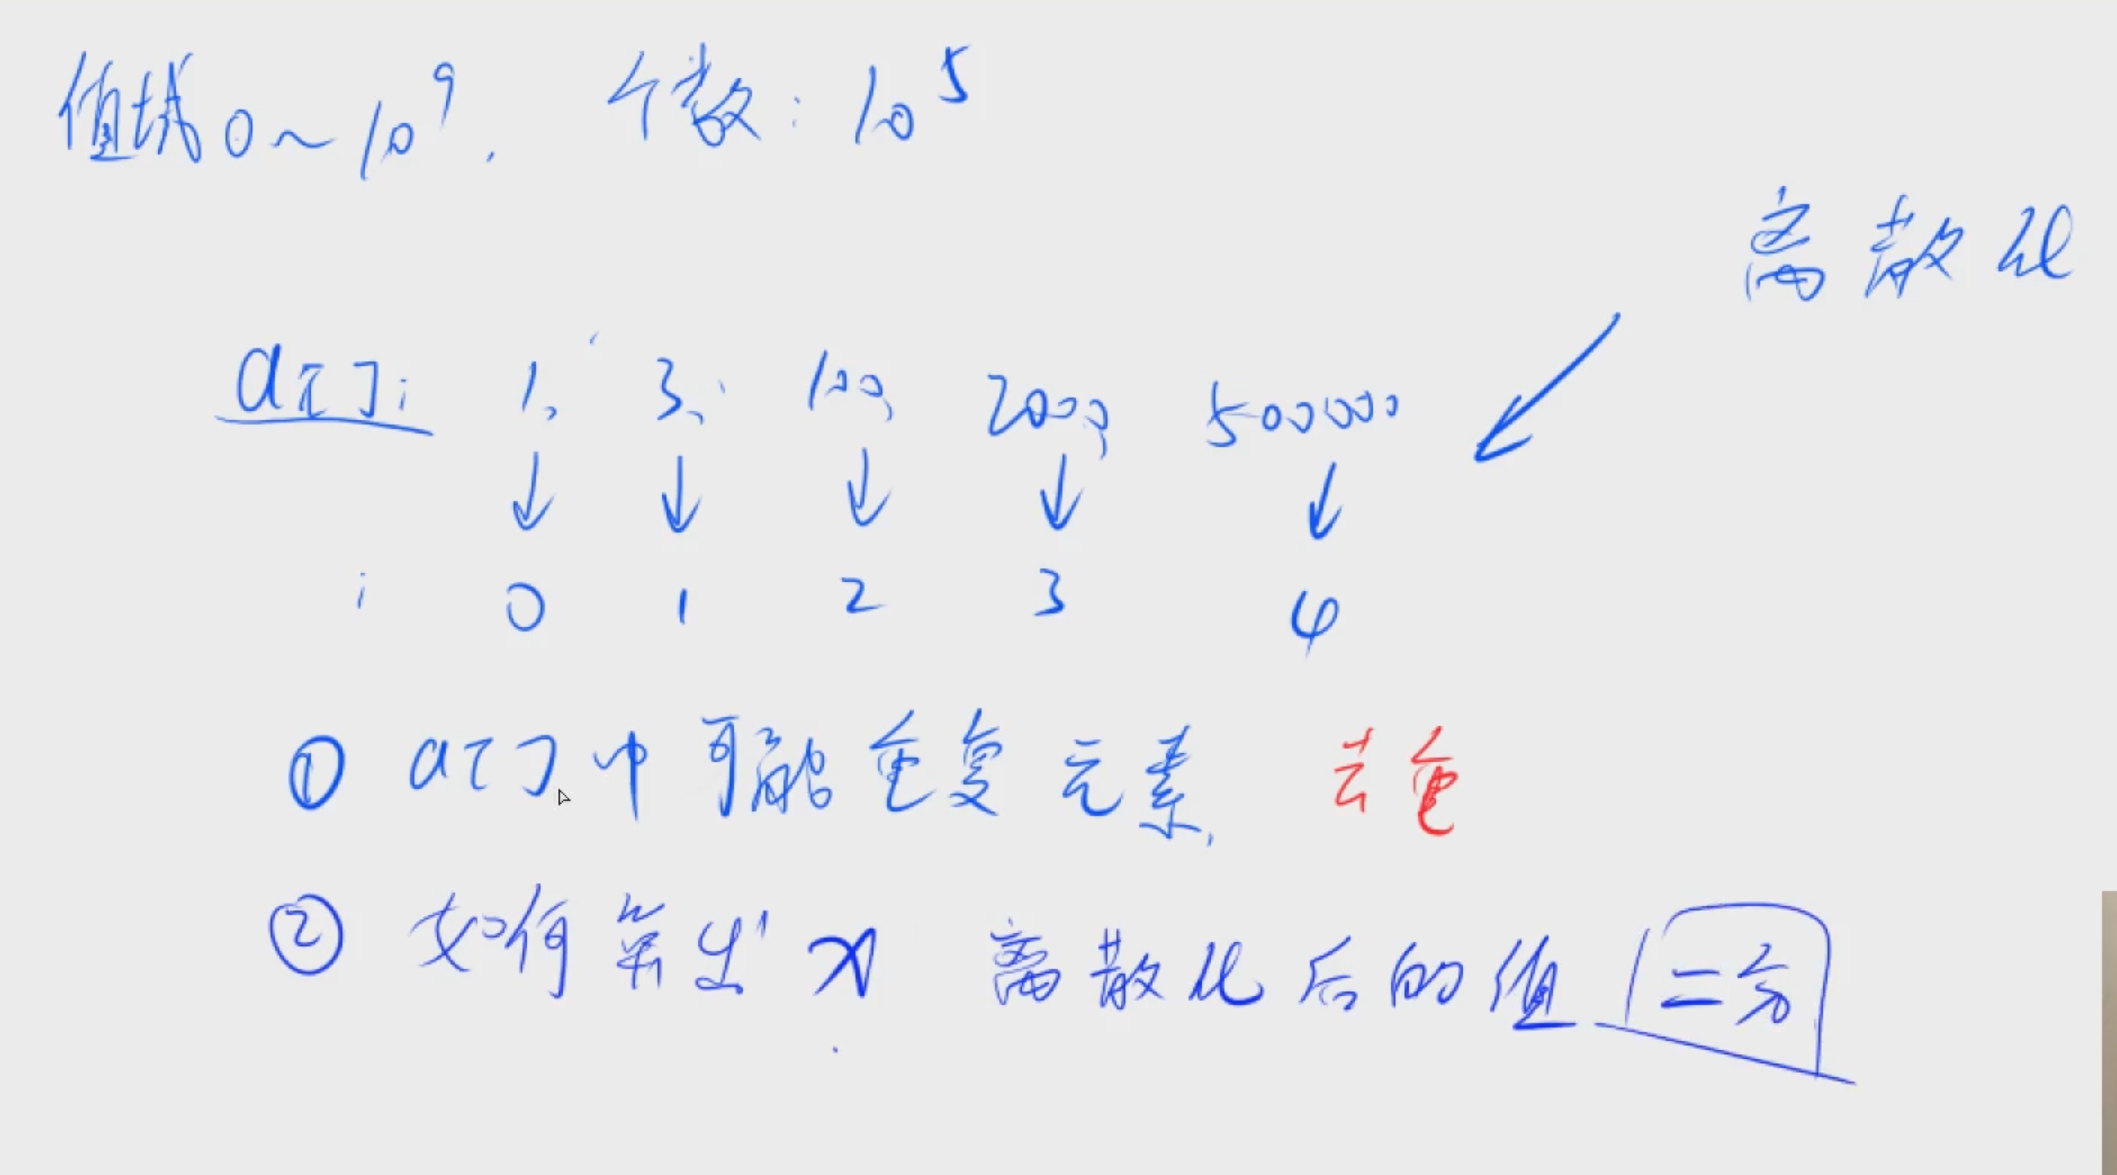 值域 0~10⁹, 个数: 10⁵
离散化
a[]: 1, 3, 100, 2000, 500000
i 0 1 2 3 4
① a[]中可能重复元素, 去重
② 如何算出 x 离散化后的值 二分